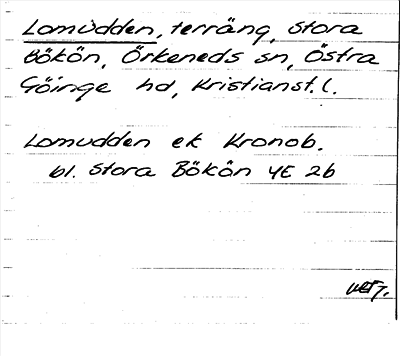 Lomudden, terräng, Stora
Bökön, Örkeneds sn, Östra
Göinge hd, Kristianst. l.
Lomudden ek Kronob.
bl. Stora Bökön 4E 2b